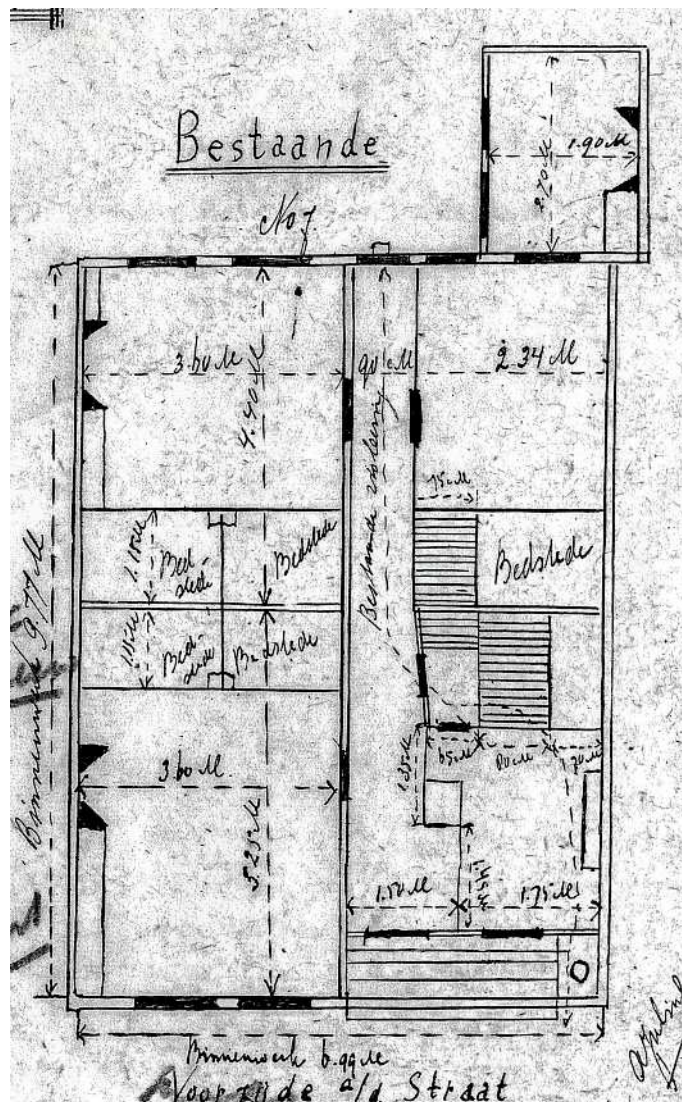 Bestaande
No 7.
1.90 M
2.70 M
3.60 M
4.40 M
90 cM
2.34 M
Bestaande riolering
75 cM
1.15 M
Bedstede
Bedstede
Bedstede
1.15 M
Bedstede
Bedstede
Binnenwerk 9.77 M
65 cM
80 cM
1.20 M
1.35 M
3.60 M.
5.25 M
1.45 M
1.50 M
1.75 M
Binnenwerk 6.99 M
Voorzijde a/d Straat